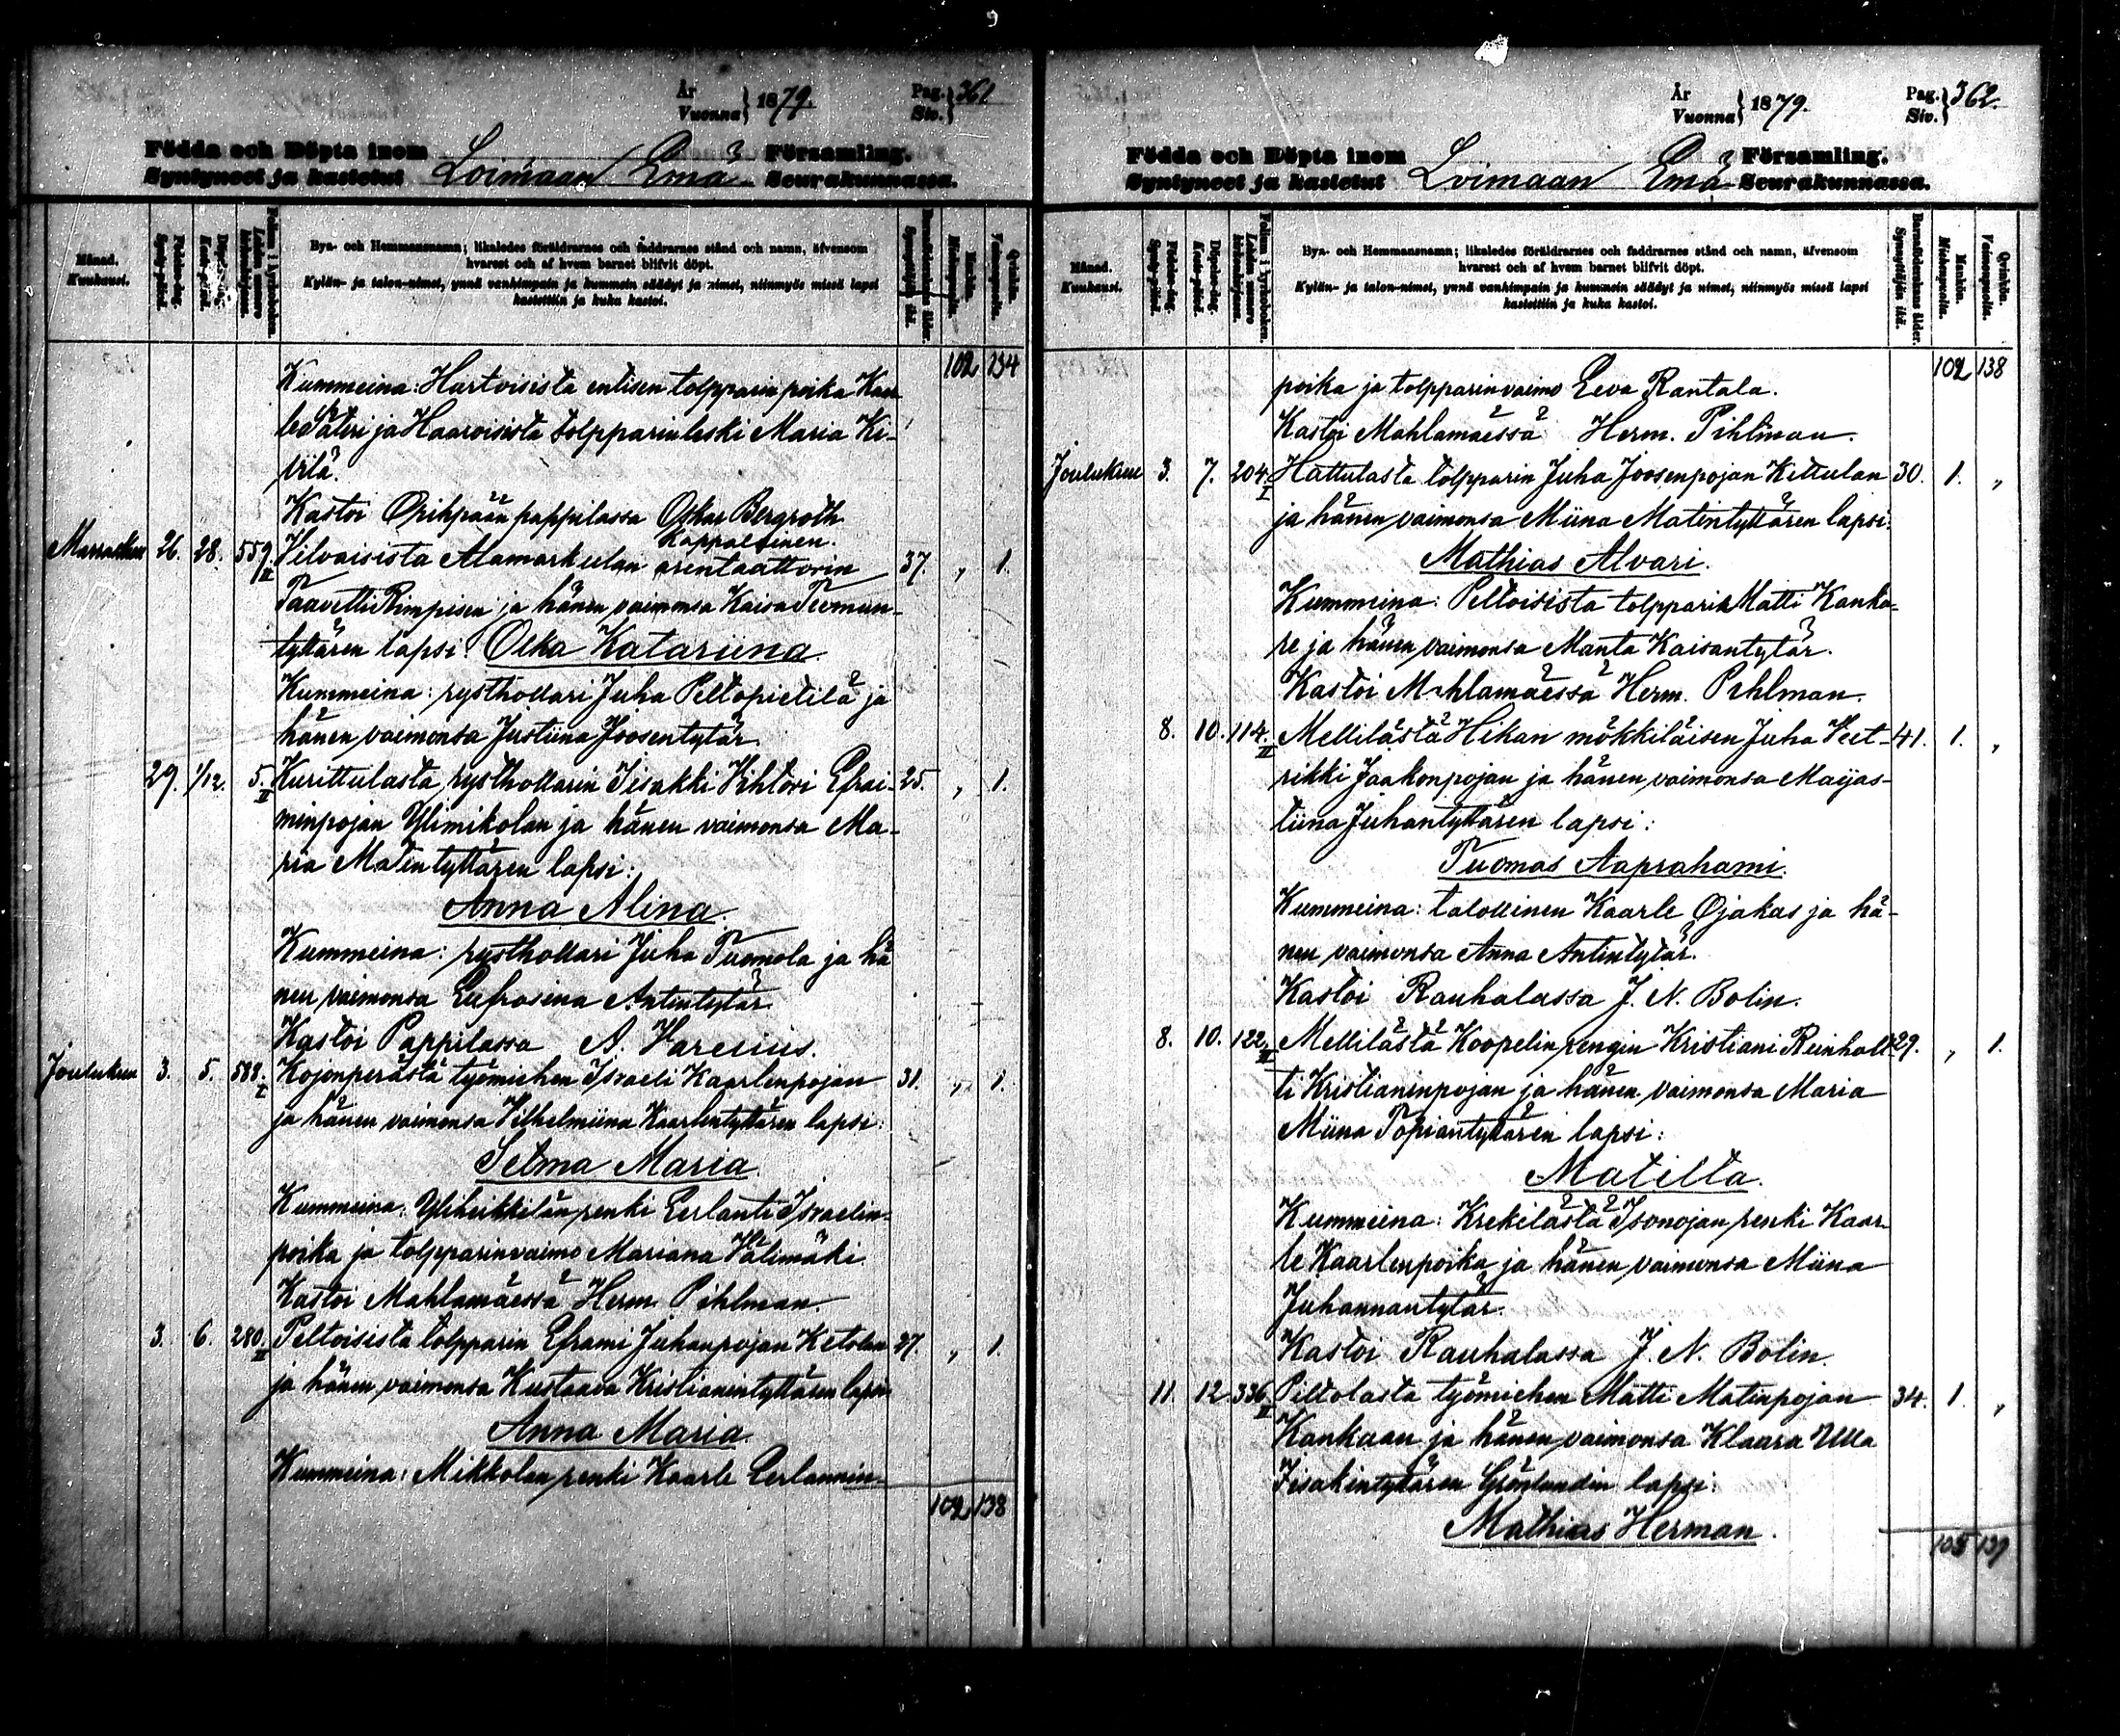 År
Vuonna } 1879.
Pag.
Siv. } 361
Födda och Döpta inom Loimaan Emä Församling.
Syntyneet ja kastetut Seurakunnassa.
Månad.
Kuukausi.
Födelse-dag.
Synty-päivä.
Döpelse-dag.
Kaste-päivä.
Folium i kyrkoboken.
Lehden numero kirkonkirjassa.
Bya- och Hemmansnamn; likaledes föräldrarnes och faddrarnes stånd och namn, äfvensom
hvarest och af hvem barnet blifvit döpt.
Kylän- ja talon-nimet, ynnä vanhimpain ja kummein säädyt ja nimet, niinmyös missä lapsi
kastettiin ja kuka kastoi.
Barnaföderskans ålder.
Synnyttäjän ikä.
Mankön.
Miehenpuolia.
Qvinkön.
Vaimonpuolia.
102 134
Kummeina: Hartoisista entisen tolpparin poika Kaar
le Säteri ja Haaroisista tolpparin leski Maria Ki-
vilä.
Kastoi Orihpään pappilassa Oskar Bergroth
Kappalainen.
Marraskuu 26. 28. 559. II Vilvaisista Alamarkulan arentaattorin 37. „ 1.
Taavetti Rimpisen ja hänen vaimonsa Kaisa Teemun-
tyttären lapsi: Olka Katariina.
Kummeina: rysthollari Juha Peltopietilä ja
hänen vaimonsa Justiina Joosentytär.
29. 1/12. 5. II Kurittulasta rysthollarin Iisakki Vihtori Efrai- 25. „ 1.
minpojan Ylimikolan ja hänen vaimonsa Ma-
ria Matintyttären lapsi:
Anna Alina.
Kummeina: rysthollari Juha Tuomola ja hä
nen vaimonsa Eufrosina Antintytär.
Kastoi Pappilassa A. Varelius.
Joulukuu 3. 5. 588. I Kojonperästä työmiehen Israeli Kaarlenpojan 31. „ 1.
ja hänen vaimonsa Vilhelmiina Kaarlentyttären lapsi:
Selma Maria
Kummeina: Yliheikkilän renki Eerlanti Israelin-
poika ja tolpparinvaimo Mariana Välimäki
Kastoi Mahlamäessä Herm. Pihlman.
3. 6. 280. II Peltoisista tolpparin Eframi Juhanpojan Ketolan 27. „ 1.
ja hänen vaimonsa Kustaava Kristianintyttären lapsi
Anna Maria.
Kummeina: Mikkolan renki Kaarle Eerlannin-
102 138
År
Vuonna } 1879.
Pag.
Siv. } 362.
Födda och Döpta inom Loimaan Emä Församling.
Syntyneet ja kastetut Seurakunnassa.
Månad.
Kuukausi.
Födelse-dag.
Synty-päivä.
Döpelse-dag.
Kaste-päivä.
Folium i kyrkoboken.
Lehden numero kirkonkirjassa.
Bya- och Hemmansnamn; likaledes föräldrarnes och faddrarnes stånd och namn, äfvensom
hvarest och af hvem barnet blifvit döpt.
Kylän- ja talon-nimet, ynnä vanhimpain ja kummein säädyt ja nimet, niinmyös missä lapsi
kastettiin ja kuka kastoi.
Barnaföderskans ålder.
Synnyttäjän ikä.
Mankön.
Miehenpuolia.
Qvinkön.
Vaimonpuolia.
102 138
poika ja tolpparinvaimo Eeva Rantala.
Kastoi Mahlamäessä Herm. Pihlman.
Joulukuu 3. 7. 204. I Hattulasta tolpparin Juha Joosenpojan Kittulan 30. 1. „
ja hänen vaimonsa Miina Matintyttären lapsi:
Mathias Alvari.
Kummeina: Peltoisista tolppari Matti Kanka-
re ja hänen vaimonsa Manta Kaisantytär.
Kastoi Mahlamäessä Herm. Pihlman.
8. 10. 114. II Mellilästä Hikan mökkiläisen Juha Veet- 41. 1. „
rikki Jaakonpojan ja hänen vaimonsa Maijas-
tiina Juhantyttären lapsi:
Tuomas Aaprahami.
Kummeina: talollinen Kaarle Ojakas ja hä-
nen vaimonsa Anna Antintytär.
Kastoi Rauhalassa J. N. Bolin.
8. 10. 122. II Mellilästä Koopelin rengin Kristiani Reinholt 29. „ 1.
ti Kristianinpojan ja hänen vaimonsa Maria
Miina Topiantyttären lapsi:
Matilta.
Kummeina: Krekilästä Isonojan renki Kaar-
le Kaarlenpoika ja hänen vaimonsa Miina
Juhannantytär.
Kastoi Rauhalassa J. N. Bolin.
11. 12. 336. II Piltolasta työmiehen Matti Matinpojan 34. 1. „
Kankaan ja hänen vaimonsa Klaara Ulla
Iisakintyttären Grönlundin lapsi:
Mathias Herman.
105 139